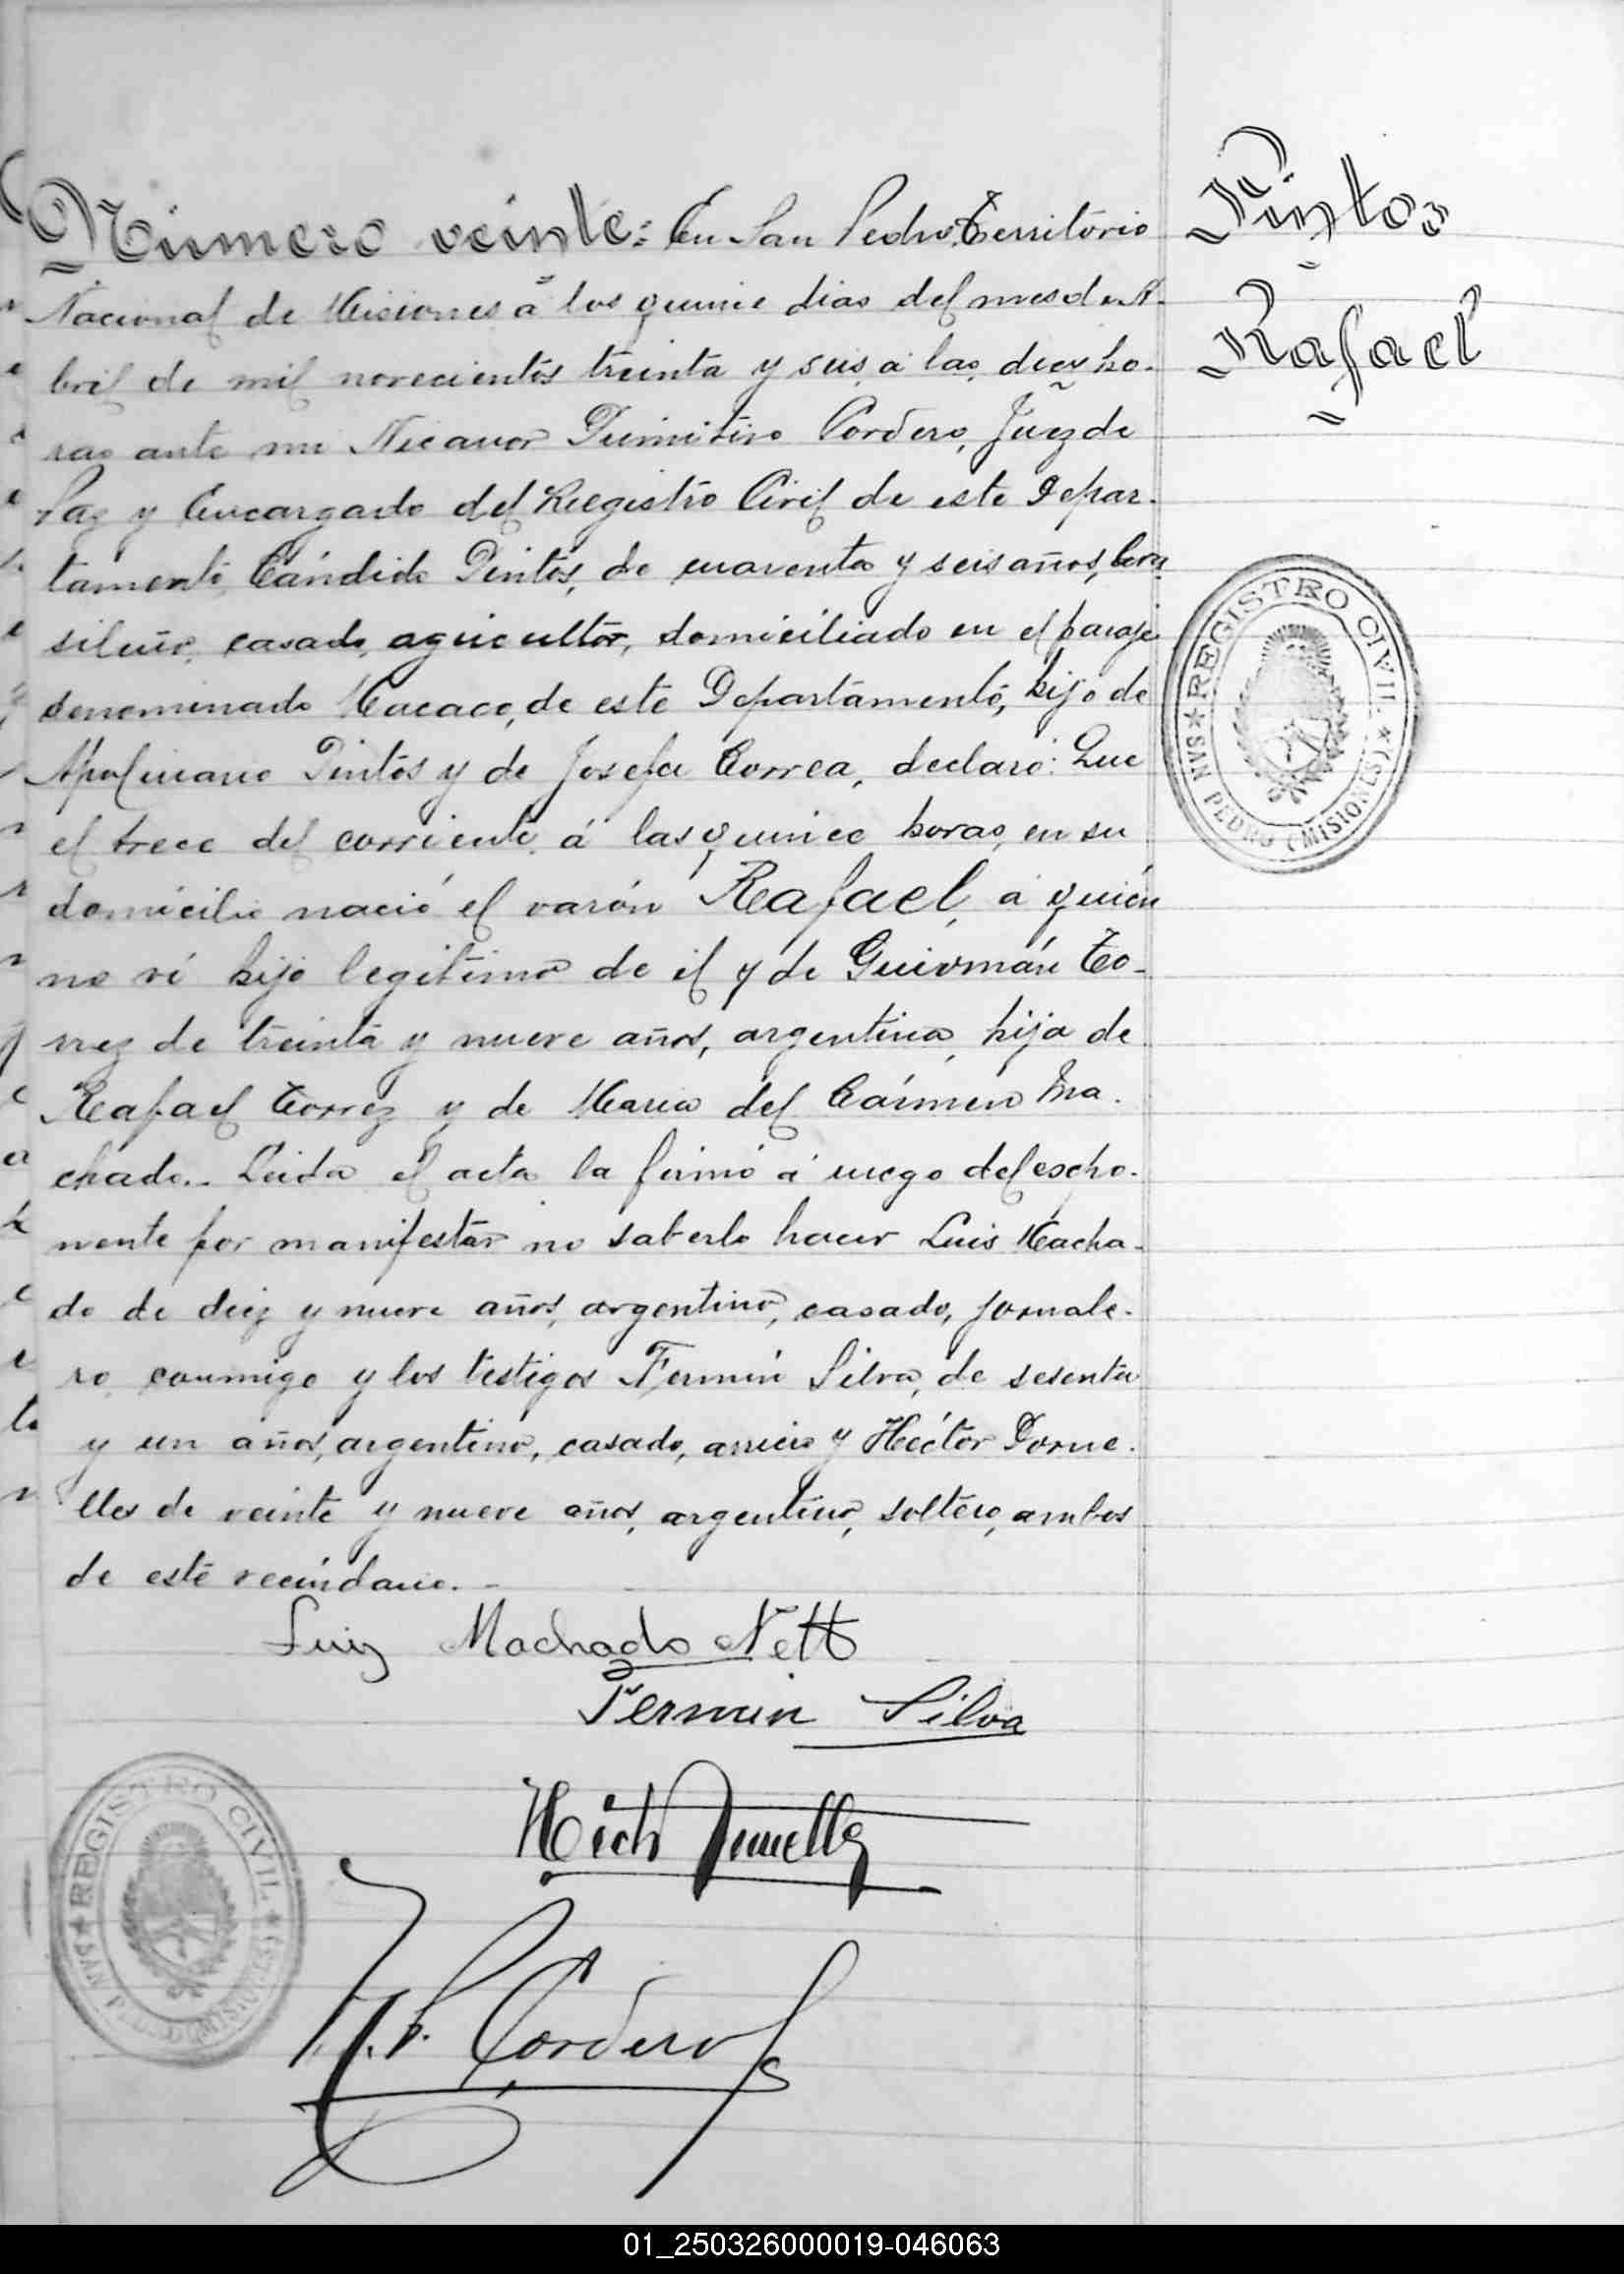 Número veinte: En San Pedro, Territorio
Nacional de Misiones á los quince dias del mes de A-
bril de mil novecientos treinta y seis, a las diez ho-
ras ante mi Nicanor Primitivo Cordero, Juez de
Paz y Encargado del Registro Civil de este Depar-
tamento, Cándido Pintos, de cuarenta y seis años, bra-
sileño, casado, agricultor, domiciliado en el paraje
denominado Macaco, de este Departamento, hijo de
Apolinario Pintos y de Josefa Correa, declaró: Que
el trece del corriente, á las quince horas, en su
domicilio nació el varón Rafael, a quién
no ví hijo legítimo de él y de Guiomán To-
rrez de treinta y nueve años, argentina, hija de
Rafael Torrez y de Maria del Cármen Ma-
chado.- Leida el acta la firmó á ruego del expo-
nente por manifestar no saberlo hacer Luis Macha-
do de diez y nueve años, argentino, casado, jornale-
ro, conmigo y los testigos Fermín Silva, de sesenta
y un años, argentino, casado, arriero y Héctor Dorne-
lles de veinte y nueve años, argentino, soltero, ambos
de este vecindario.-
Luiz Machado Nett
Fermin Silva
Héctor Dornelles
N. P. Cordero
Pintos
Rafael
REGISTRO CIVIL
SAN PEDRO (MISIONES)
REGISTRO CIVIL
SAN PEDRO (MISIONES)
01_250326000019-046063